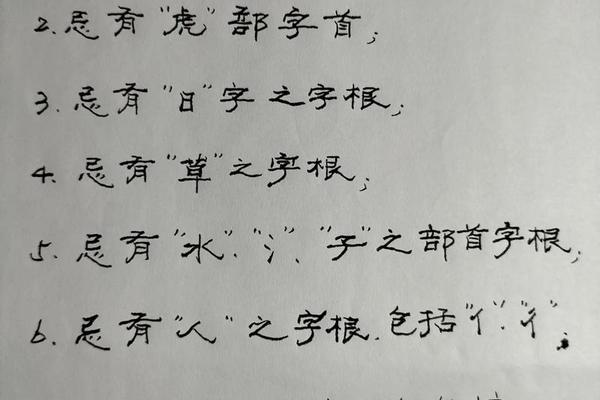 2.忌有"虎"部字首;
3.忌有"日"字之字根;
4.忌有"草"之字根;
5.忌有"水"、"氵"、"子"之部首字根;
6.忌有"人"之字根.包括"亻"、"彳";